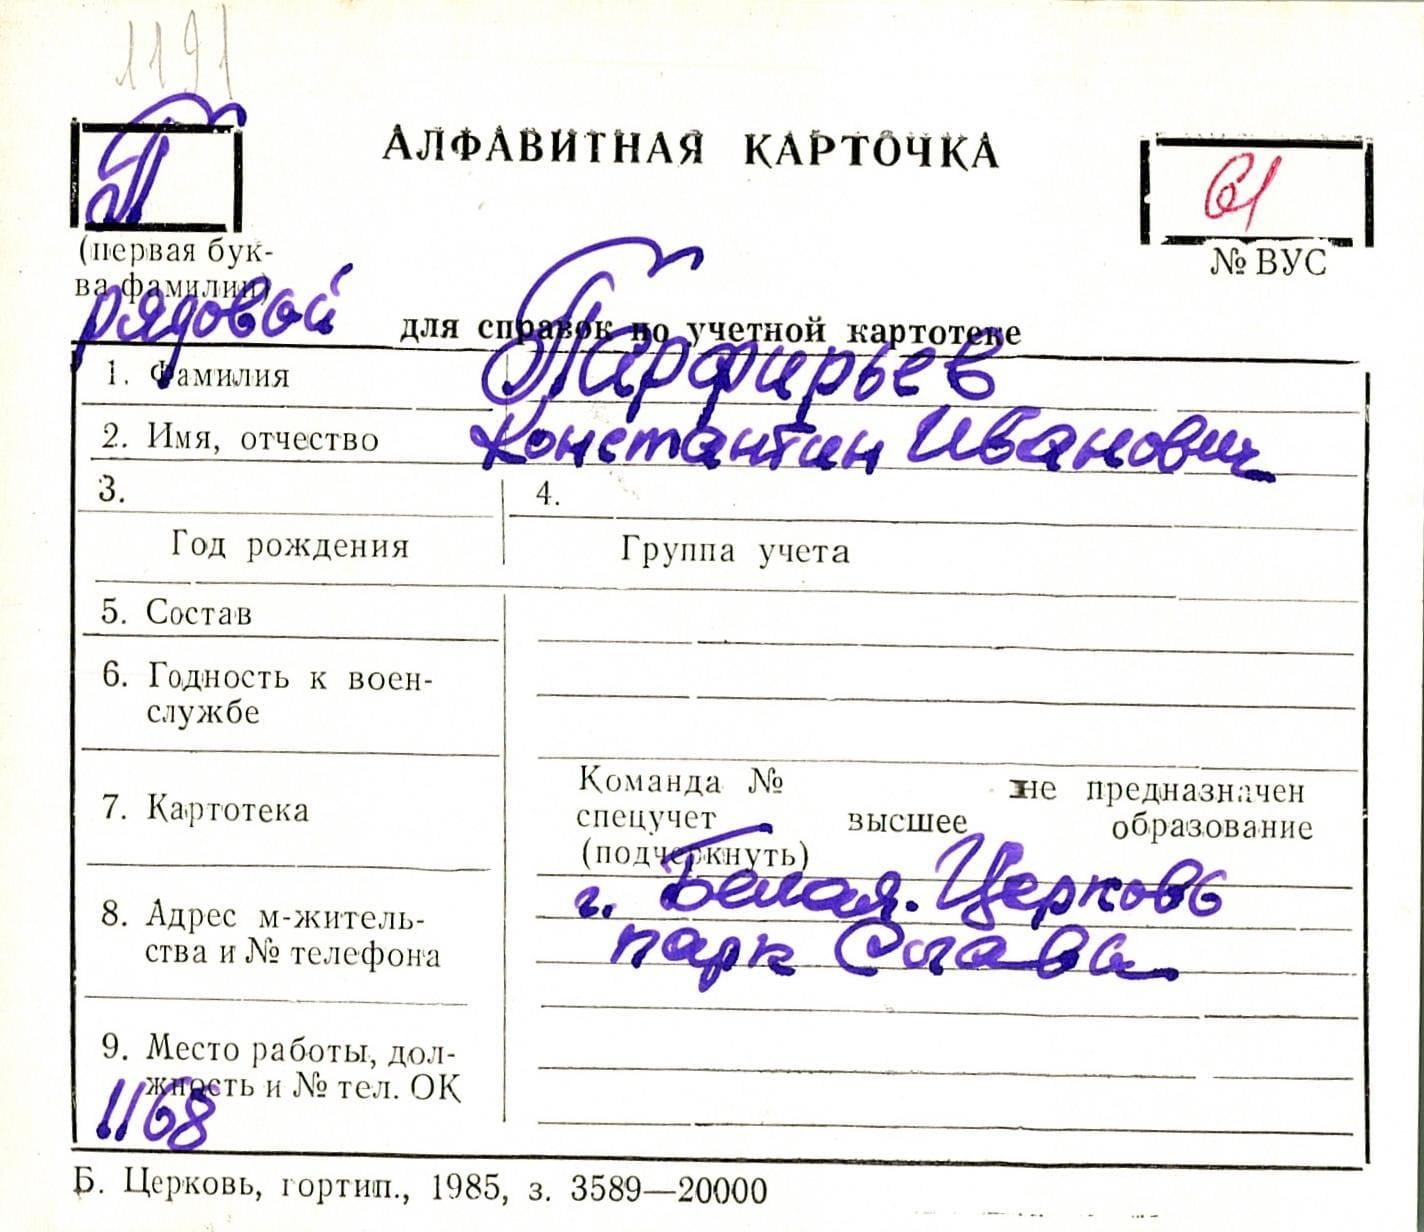 1191
П
АЛФАВИТНАЯ КАРТОЧКА
61
(первая бук-
ва фамилии)
№ ВУС
рядовой
для справок по учетной картотеке
1. Фамилия Парфирьев
2. Имя, отчество Константин Иванович
3. 4.
Год рождения Группа учета
5. Состав
6. Годность к воен-
службе
7. Картотека
Команда № не предназначен
спецучет высшее образование
(подчеркнуть)
8. Адрес м-житель-
ства и № телефона
г. Белая. Церковь
парк Славы
9. Место работы, дол-
жность и № тел. ОК
1168
Б. Церковь, гортип., 1985, з. 3589—20000